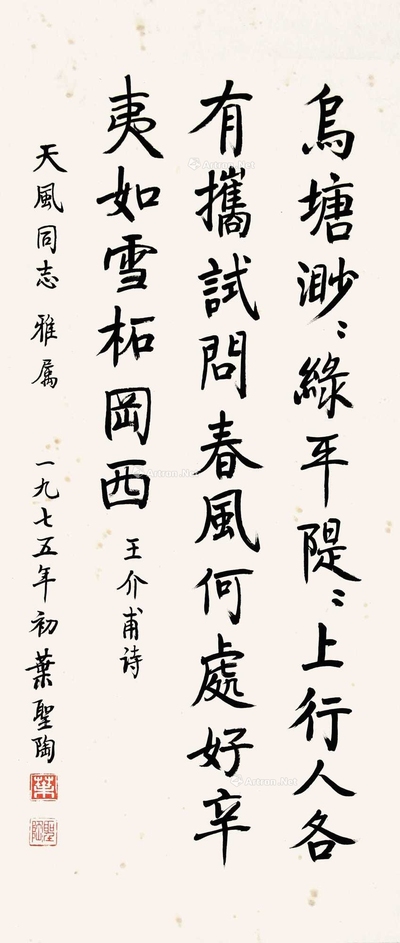 烏塘渺〻綠平隄〻上行人各
有攜試問春風何處好辛
夷如雪柘岡西
王介甫詩
天風同志雅屬
一九七五年初葉聖陶
葉
聖陶
Artron.Net
Artron.Net
Artron.Net